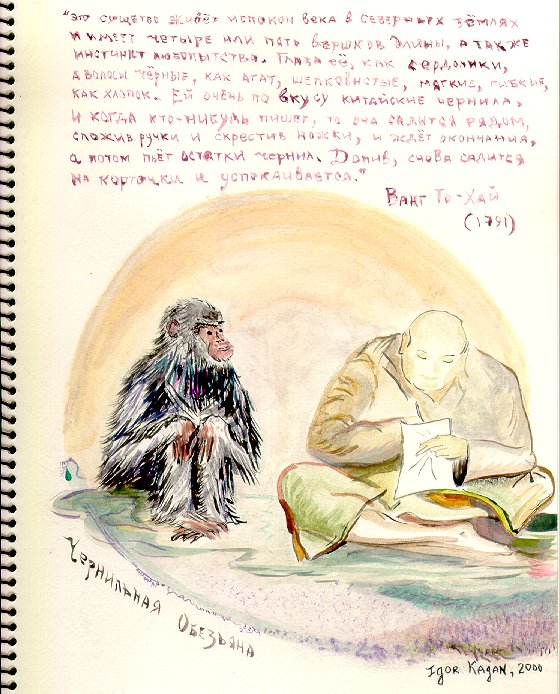 "Это существо живёт испокон века в северных землях
и имеет четыре или пять вершков длины, а также
инстинкт любопытства. Глаза её, как сердолики,
а волосы чёрные, как агат, шелковистые, мягкие, гибкие,
как хлопок. Ей очень по вкусу китайские чернила,
и когда кто-нибудь пишет, то она садится рядом,
сложив ручки и скрестив ножки, и ждёт окончания,
а потом пьёт остатки чернил. Допив, снова садится
на корточки и успокаивается."
Ванг То-Хай
(1791)
Чернильная Обезьяна
Igor Kagan, 2000